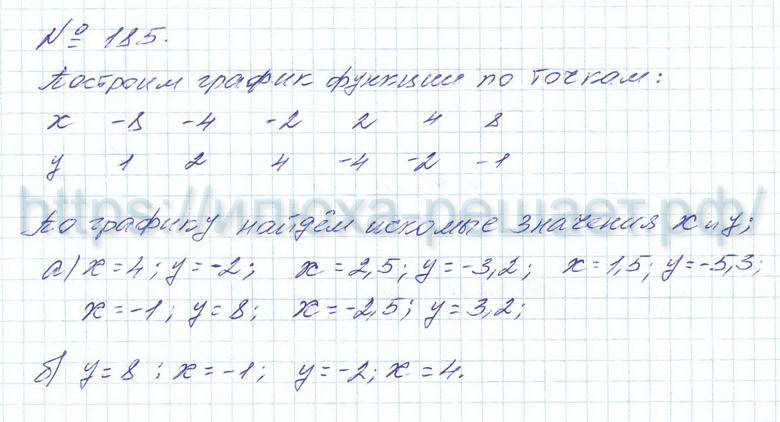 № 185.
Построим график функции по точкам:
x -8 -4 -2 2 4 8
y 1 2 4 -4 -2 -1
https://илюха-решает.рф/
По графику найдём искомые значения x и y;
а) x=4; y=-2; x=2,5; y=-3,2; x=1,5; y=-5,3;
x=-1; y=8; x=-2,5; y=3,2;
б) y=8; x=-1; y=-2; x=4.